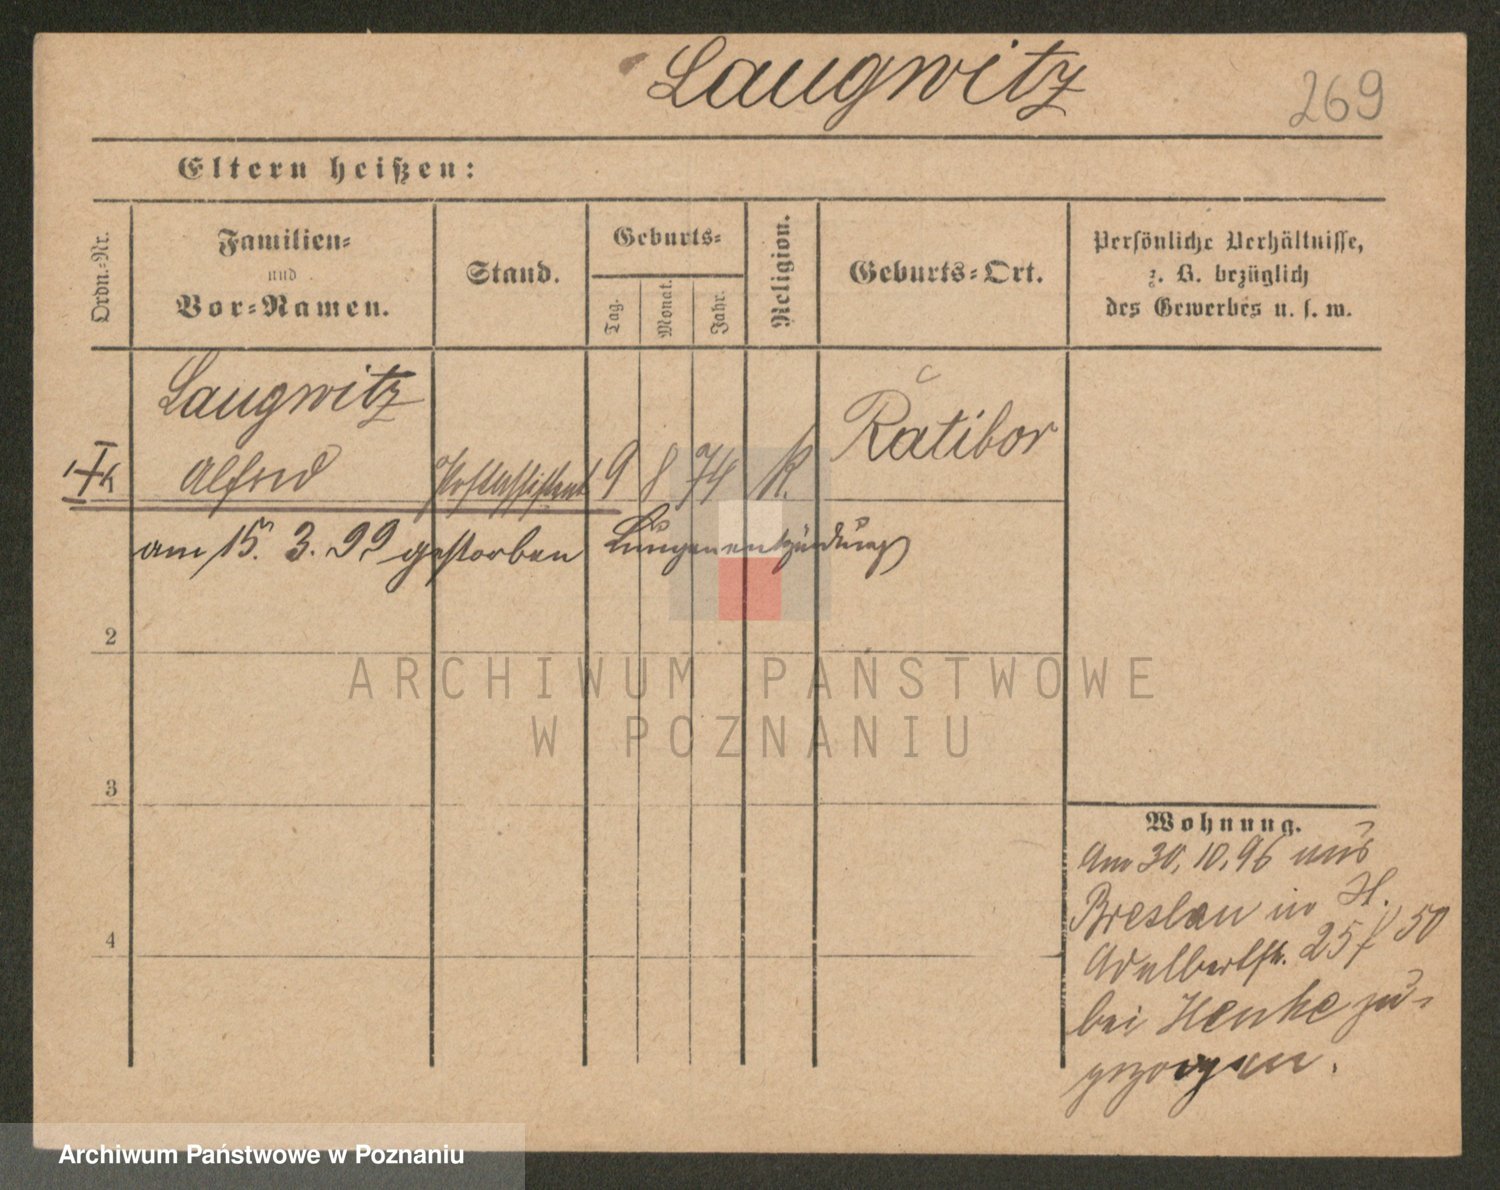 Laugwitz
269
Eltern heißen:
Ordn.-Nr.
Familien-
und
Vor-Namen.
Stand.
Geburts-
Tag.
Monat.
Jahr.
Religion.
Geburts-Ort.
Persönliche Verhältnisse,
z. B. bezüglich
des Gewerbes u. s. w.
Laugwitz
Alfred
Postassistent
9
8
74
K.
Ratibor
am 15. 3. 99 gestorben Lungenentzündung
2
3
4
Wohnung.
Am 30.10.96 aus
Breslau in H.
Adalbertstr. 25 / 50
bei Henke zu-
gezogen.
ARCHIWUM PAŃSTWOWE
W POZNANIU
Archiwum Państwowe w Poznaniu